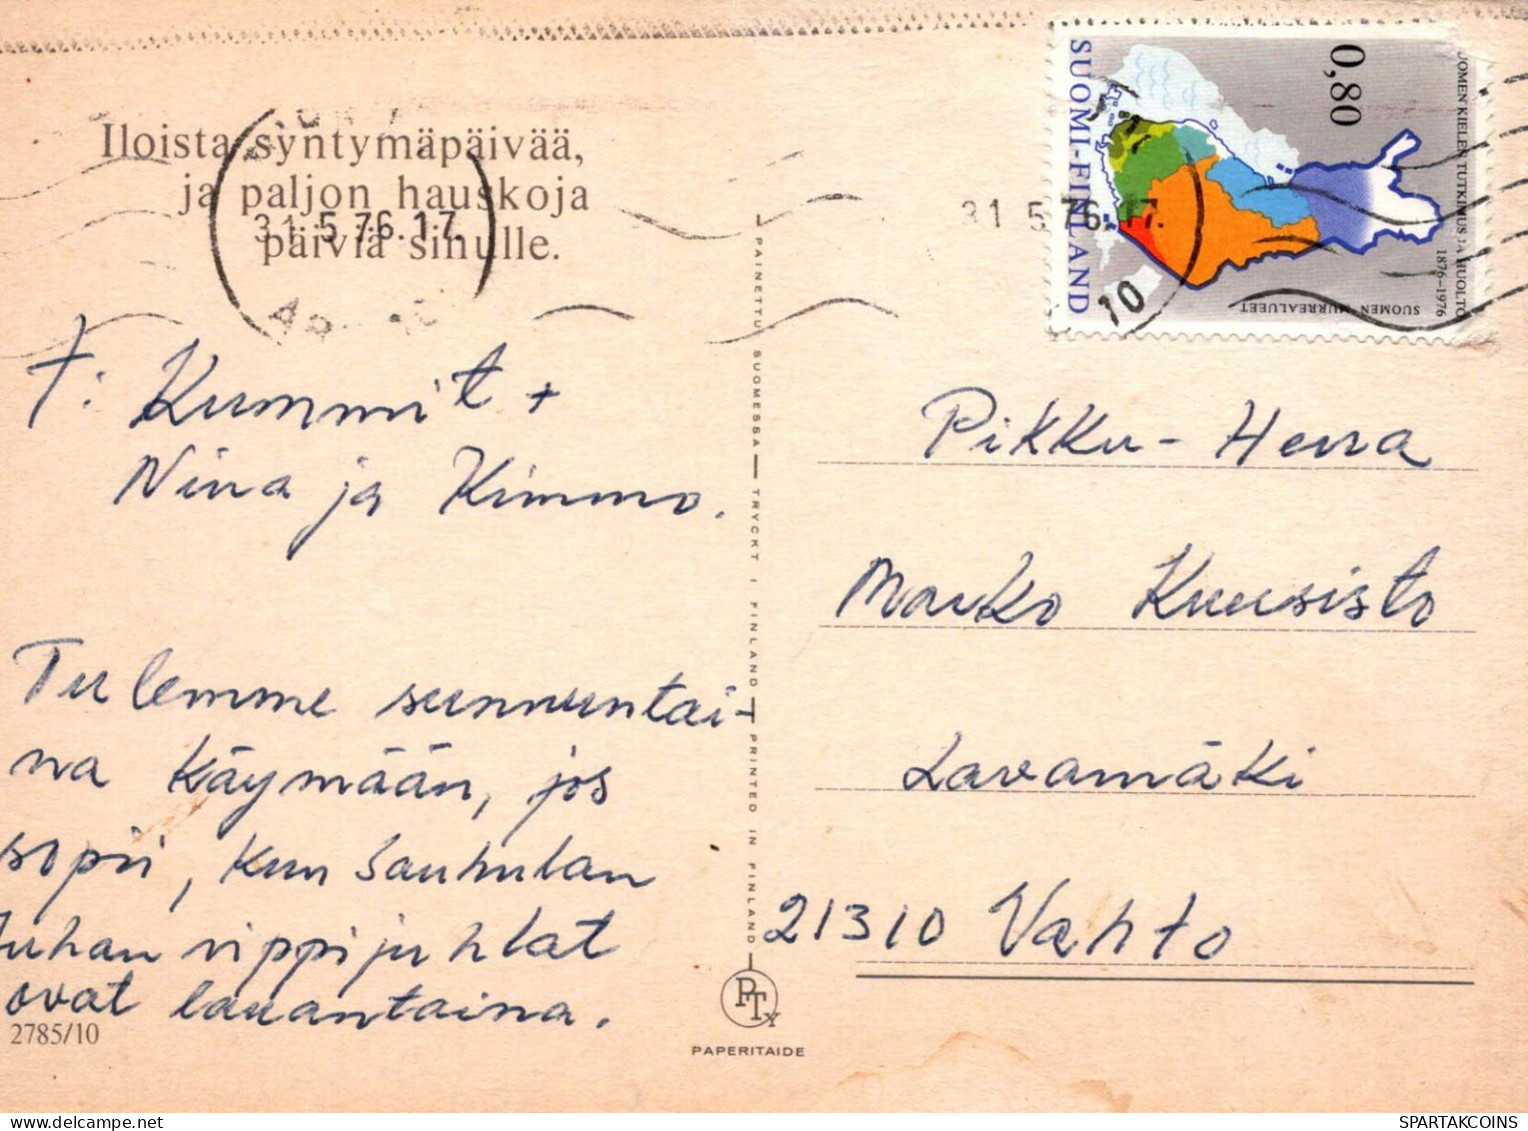 Iloista syntymäpäivää,
ja paljon hauskoja
päiviä sinulle.
31.5.76.17.
T: Kummit +
Nina ja Kimmo.
Tulemme sunnuntai-
na käymään, jos
sopii, kun Sauhulan
Juhan rippijuhlat
ovat lauantaina.
2785/10
PAINETTU SUOMESSA — TRYCKT I FINLAND — PRINTED IN FINLAND
PTY
PAPERITAIDE
31 5 76.17.
10
SUOMI-FINLAND
0,80
SUOMEN MURREALUEET
1876-1976
KIELEN TUTKIMUS JA HUOLTO
Pikku-Herra
Marko Kuusisto
Lavamäki
21310 Vahto
SPARTAKCOINS.COM